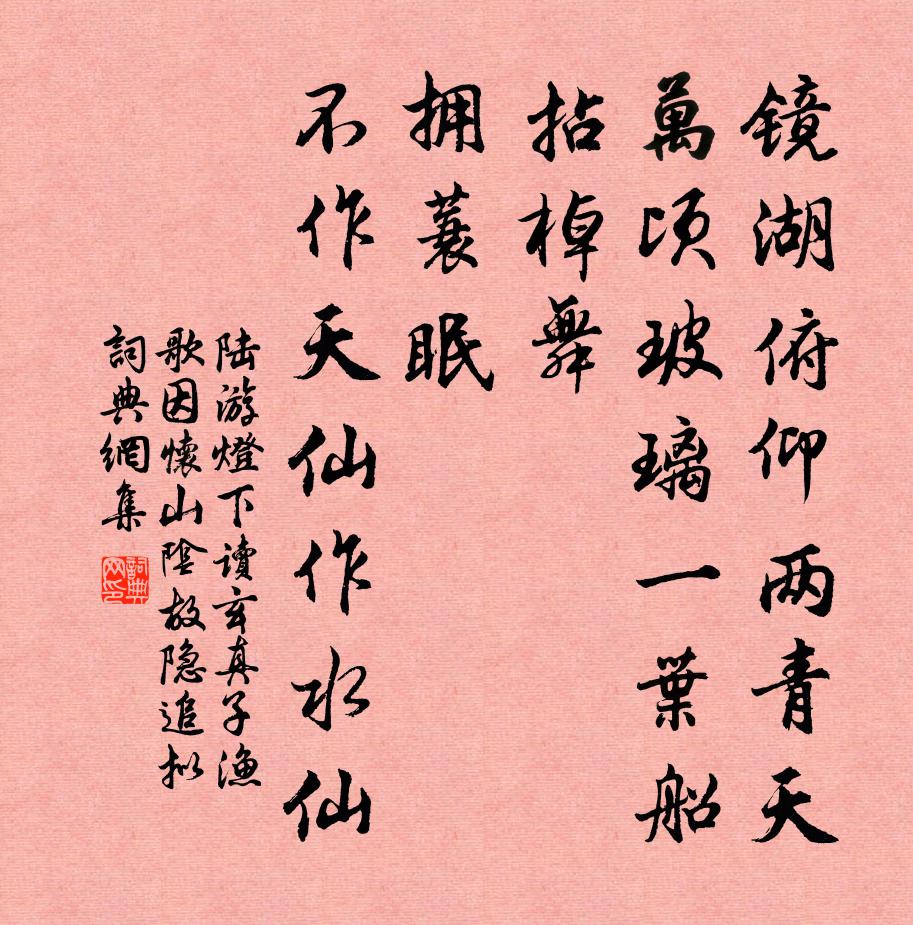 镜湖俯仰两青天
萬顷玻璃一葉船
拈棹舞
拥蓑眠
不作天仙作水仙
陆游燈下读玄真子渔
歌因懷山陰故隐追拟
詞典網集
詞典网印